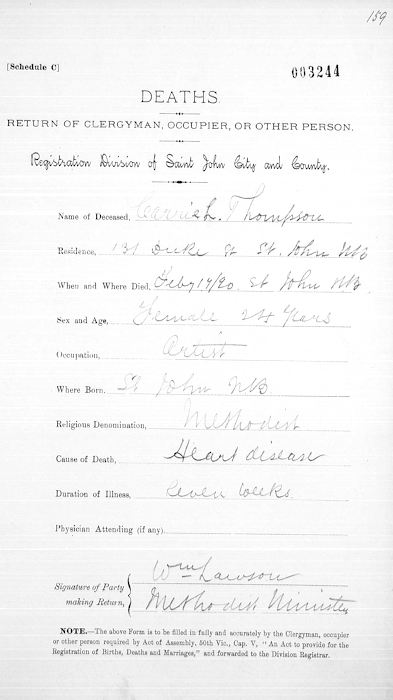 159
[Schedule C]
003244
DEATHS.
RETURN OF CLERGYMAN, OCCUPIER, OR OTHER PERSON.
Registration Division of Saint John City and County.
Name of Deceased, Carrie L. Thompson
Residence, 131 Duke St St. John NB
When and Where Died, Feby 19/90. St John NB.
Sex and Age, Female 24 Years
Occupation, Artist
Where Born. St John NB
Religious Denomination, Methodist
Cause of Death, Heart disease
Duration of Illness, Seven Weeks
Physician Attending (if any).
Signature of Party making Return, { Wm Lawson
Methodist Minister
NOTE.—The above Form is to be filled in fully and accurately by the Clergyman, occupier
or other person required by Act of Assembly, 50th Vic., Cap. V, "An Act to provide for the
Registration of Births, Deaths and Marriages," and forwarded to the Division Registrar.